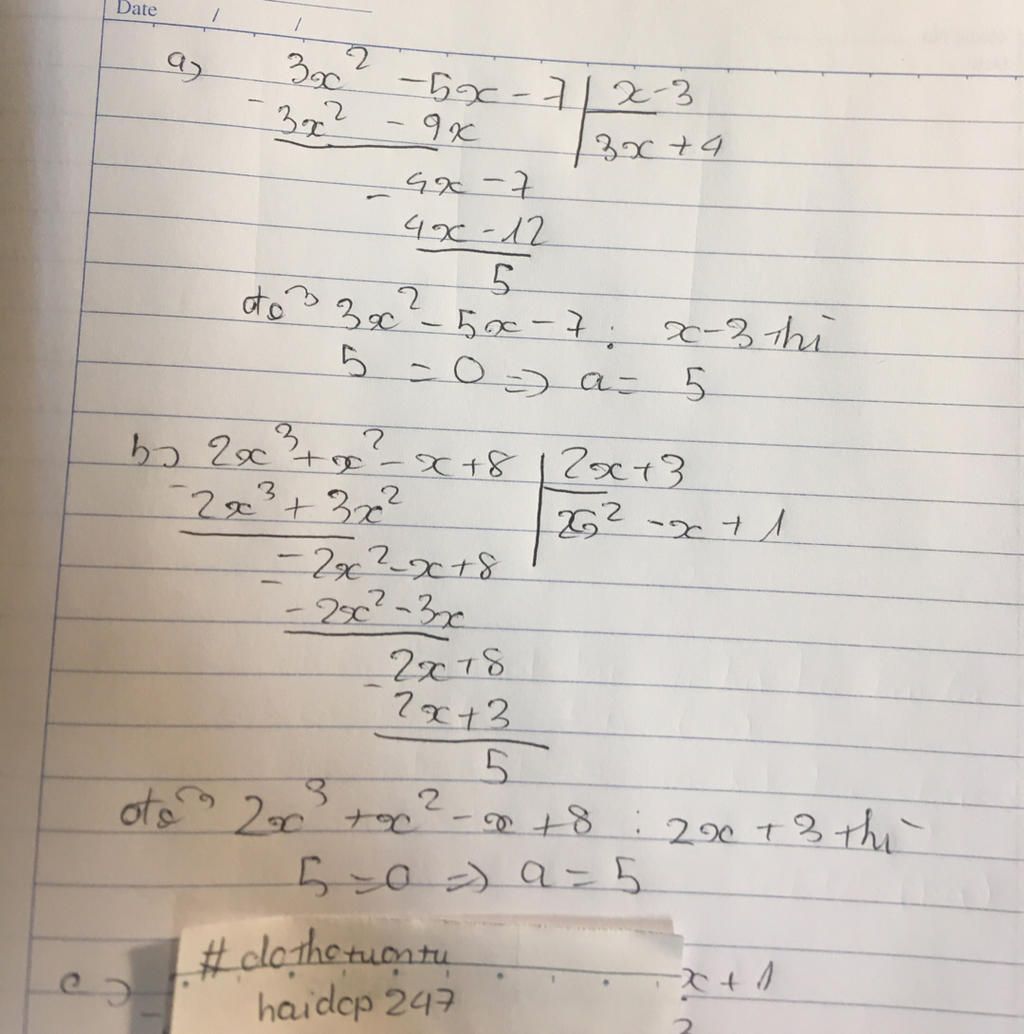 Date / /
a) 3x² - 5x - 7 | x - 3
- 3x² - 9x | 3x + 4
- 4x - 7
4x - 12
5
để 3x² - 5x - 7 : x - 3 thì
5 = 0 => a = 5
b) 2x³ + x² - x + 8 | 2x + 3
- 2x³ + 3x² | x² - x + 1
- - 2x² - x + 8
- 2x² - 3x
- 2x + 8
2x + 3
5
để 2x³ + x² - x + 8 : 2x + 3 thì
5 = 0 => a = 5
#dothotuontu
c) x + 1
haidcp247